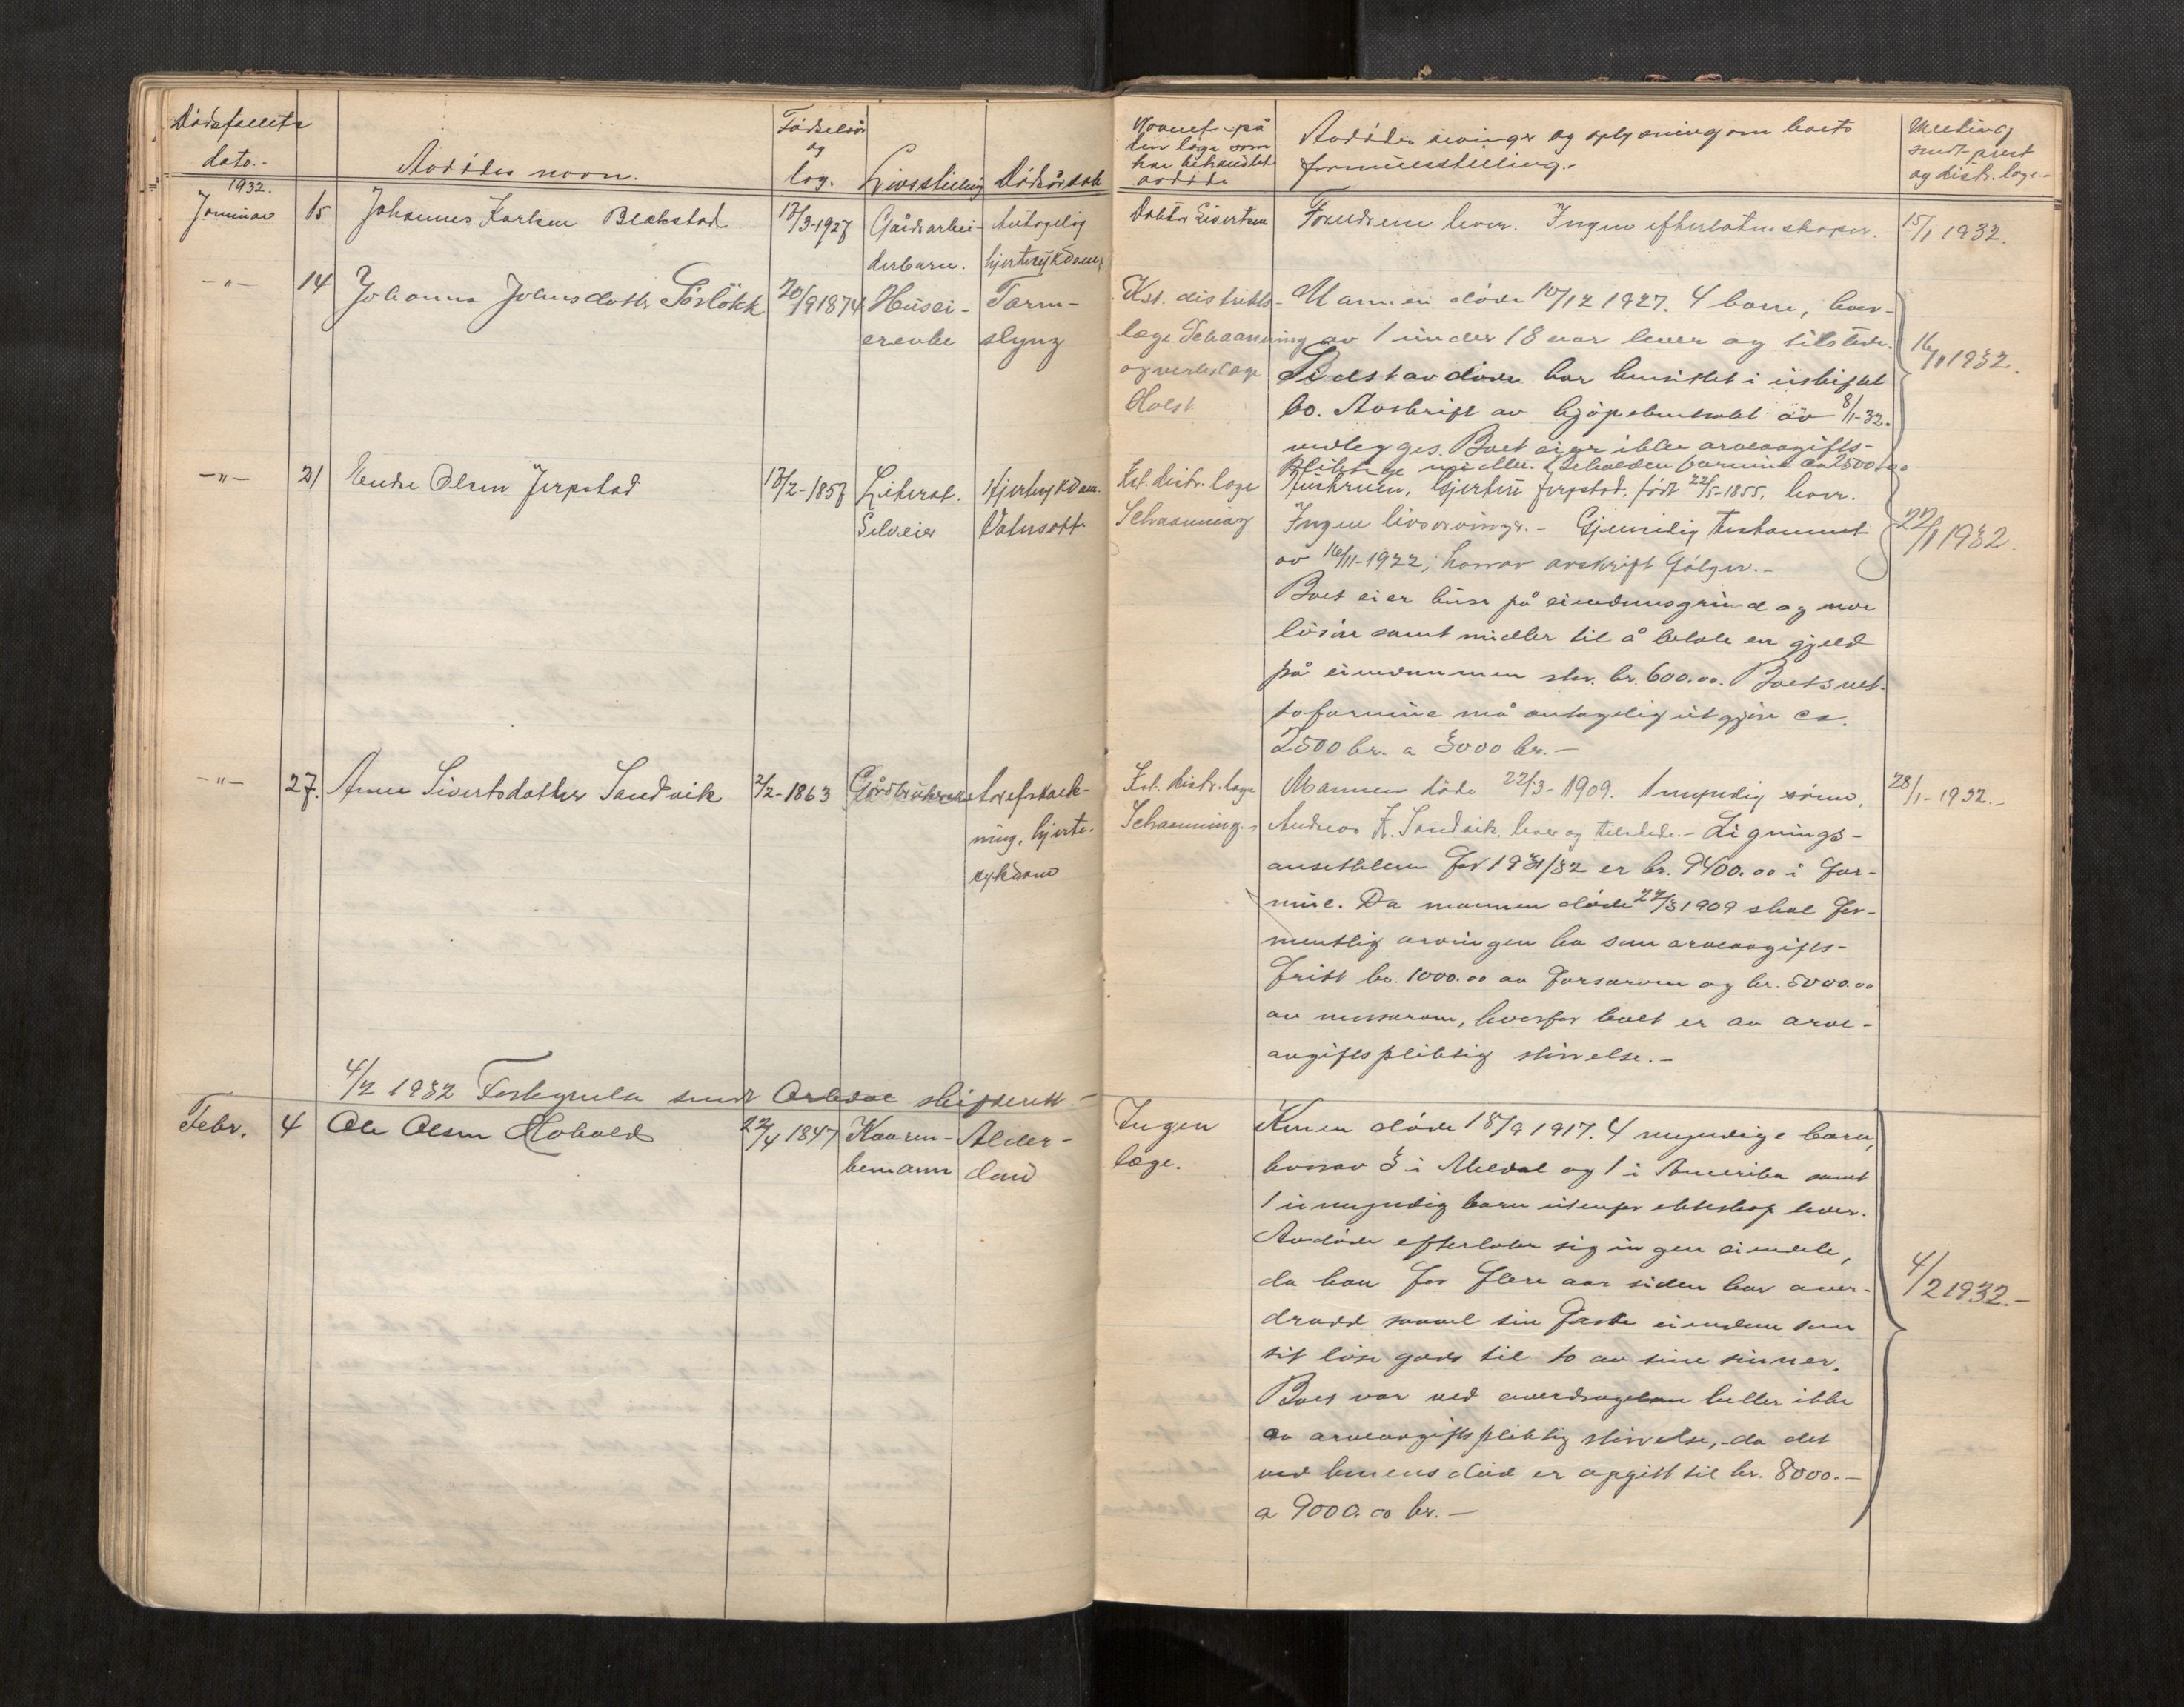 Dødsfallets
dato.-
Avdødes navn.
Fødselsår
og
dag.
Livsstilling
Dødsårsak
Navnet på
den læge som
har behandlet
avdøde
Avdødes arvinger og oplysning om boets
formuesstilling.-
Melding
sendt prest
og distr. læge.-
1932.
Januar 15 Johannes Karlsen Blokstad 13/3-1927 Gårdsarbei-
derbarn.
Antagelig
hjertesykdom,
Doktor Sivertsen
Foreldrene lever. Ingen efterlatenskaper.
15/1 1932.
-"- 14 Johanna Johnsdatter Sörlökk 20/9 1874 Husei-
erenke
Tarm-
slyng
Kst. distrikts-
læge Schaanning
og verkslæge
Holst
Mannen døde 10/12 1927. 4 barn, hvor-
av 1 under 18 aar lever og tilstede.
Sidst avdøde har hensittet i uskiftet
bo. Avskrift av kjöpekontrakt av 8/1-32.
vedlegges. Boet eier ikke arveavgifts-
pliktige midler. Beholden formue ca 2500.00
16/1 1932.
-"- 21 Endre Olsen Jerpstad 13/2-1857 Fikerat.
Selveier
Hjertesykdom.
Vatersott
Kst. distr. læge
Schaanning
Hustruen, Gjertine Jerpstad, født 22/5-1855, lever.
Ingen livsarvinger.- Gjensidig testament
av 16/11-1922, hvorav avskrift følger.-
Boet eier huse på eiendomsgrund og noe
lösöre samt midler til å betale en gjeld
på eiendommen stor kr. 600.00. Boets net-
toformue må antagelig utgjøre ca.
2500 kr. a 3000 kr.-
22/1 1932.
-"- 27. Anne Sivertsdatter Sandvik 2/2-1863 Gårdbrukerenke
Åreforkalk-
ning, hjerte-
sykdom
Kst. distr. læge
Schaanning.-
Mannen døde 22/3-1909. 1 myndig sönn,
Andreas K. Sandvik, lever og tilstede.- Lignings-
ansettelsen for 1931/32 er kr. 9400.00 i for-
mue. Da mannen döde 22/3 1909 skal for-
mentlig arvingen ha som arveavgifts-
fritt kr. 1000.00 av farsarven og kr. 5000.00
av morsarven, hvorfor boet er av arve-
avgiftspliktig störrelse.-
28/1-1932.-
4/2 1932 Forkynnelse sendt Orkdal skifterett.-
Febr. 4 Ole Olsen Hobold 22/4 1847 Kaaren-
kemann
Alder-
dom
Ingen
læge.
Konen döde 18/9 1917. 4 myndige barn,
hvorav 3 i Meldal og 1 i Amerika samt
1 umyndig barn utenfor ekteskap lever.
Avdöde efterlater sig ingen eiendele,
da han for flere aar siden har over-
dradd saavel sin faste eiendom som
sit löse gods til to av sine sönner.
Boet var ved overdragelsen heller ikke
av arveavgiftspliktig störrelse, da det
ved konens död er opgitt til kr. 8000.-
a 9000.00 kr.-
4/2 1932.-